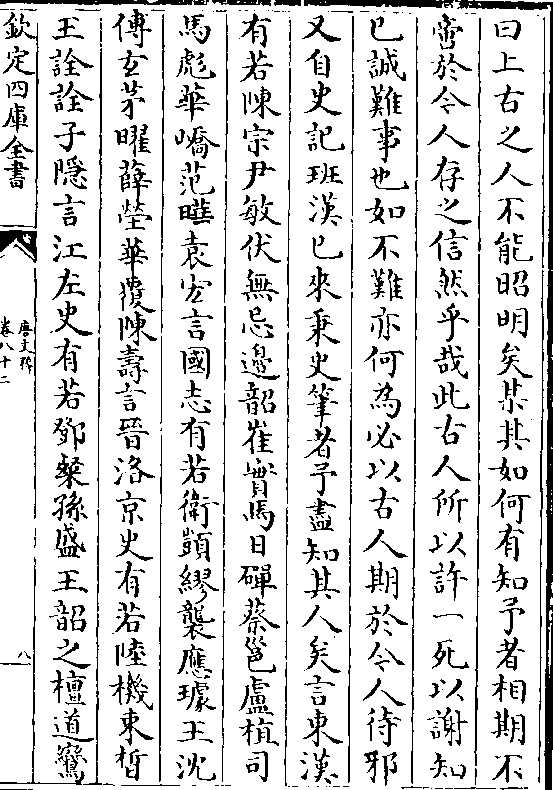 曰上古之人不能昭明矣某其如何有知予者相期不
啻於今人存之信然乎哉此古人所以許一死以謝知
已誠難事也如不難亦何為必以古人期於今人待邪
又自史記班漢已來秉史筆者予盡知其人矣言東漢
有若陳宗尹敏伏無忌邊韶崔寔馬日磾蔡邕盧植司
馬彪華嶠范曄袁宏言國志有若衛顗繆襲應璩王沈
傅玄茅曜薛瑩華覆陳壽言晉洛京史有若陸機束晳
王詮詮子隱言江左史有若鄧粲孫盛王韶之檀道鸞
欽定四庫全書
唐文粹
卷八十二
八